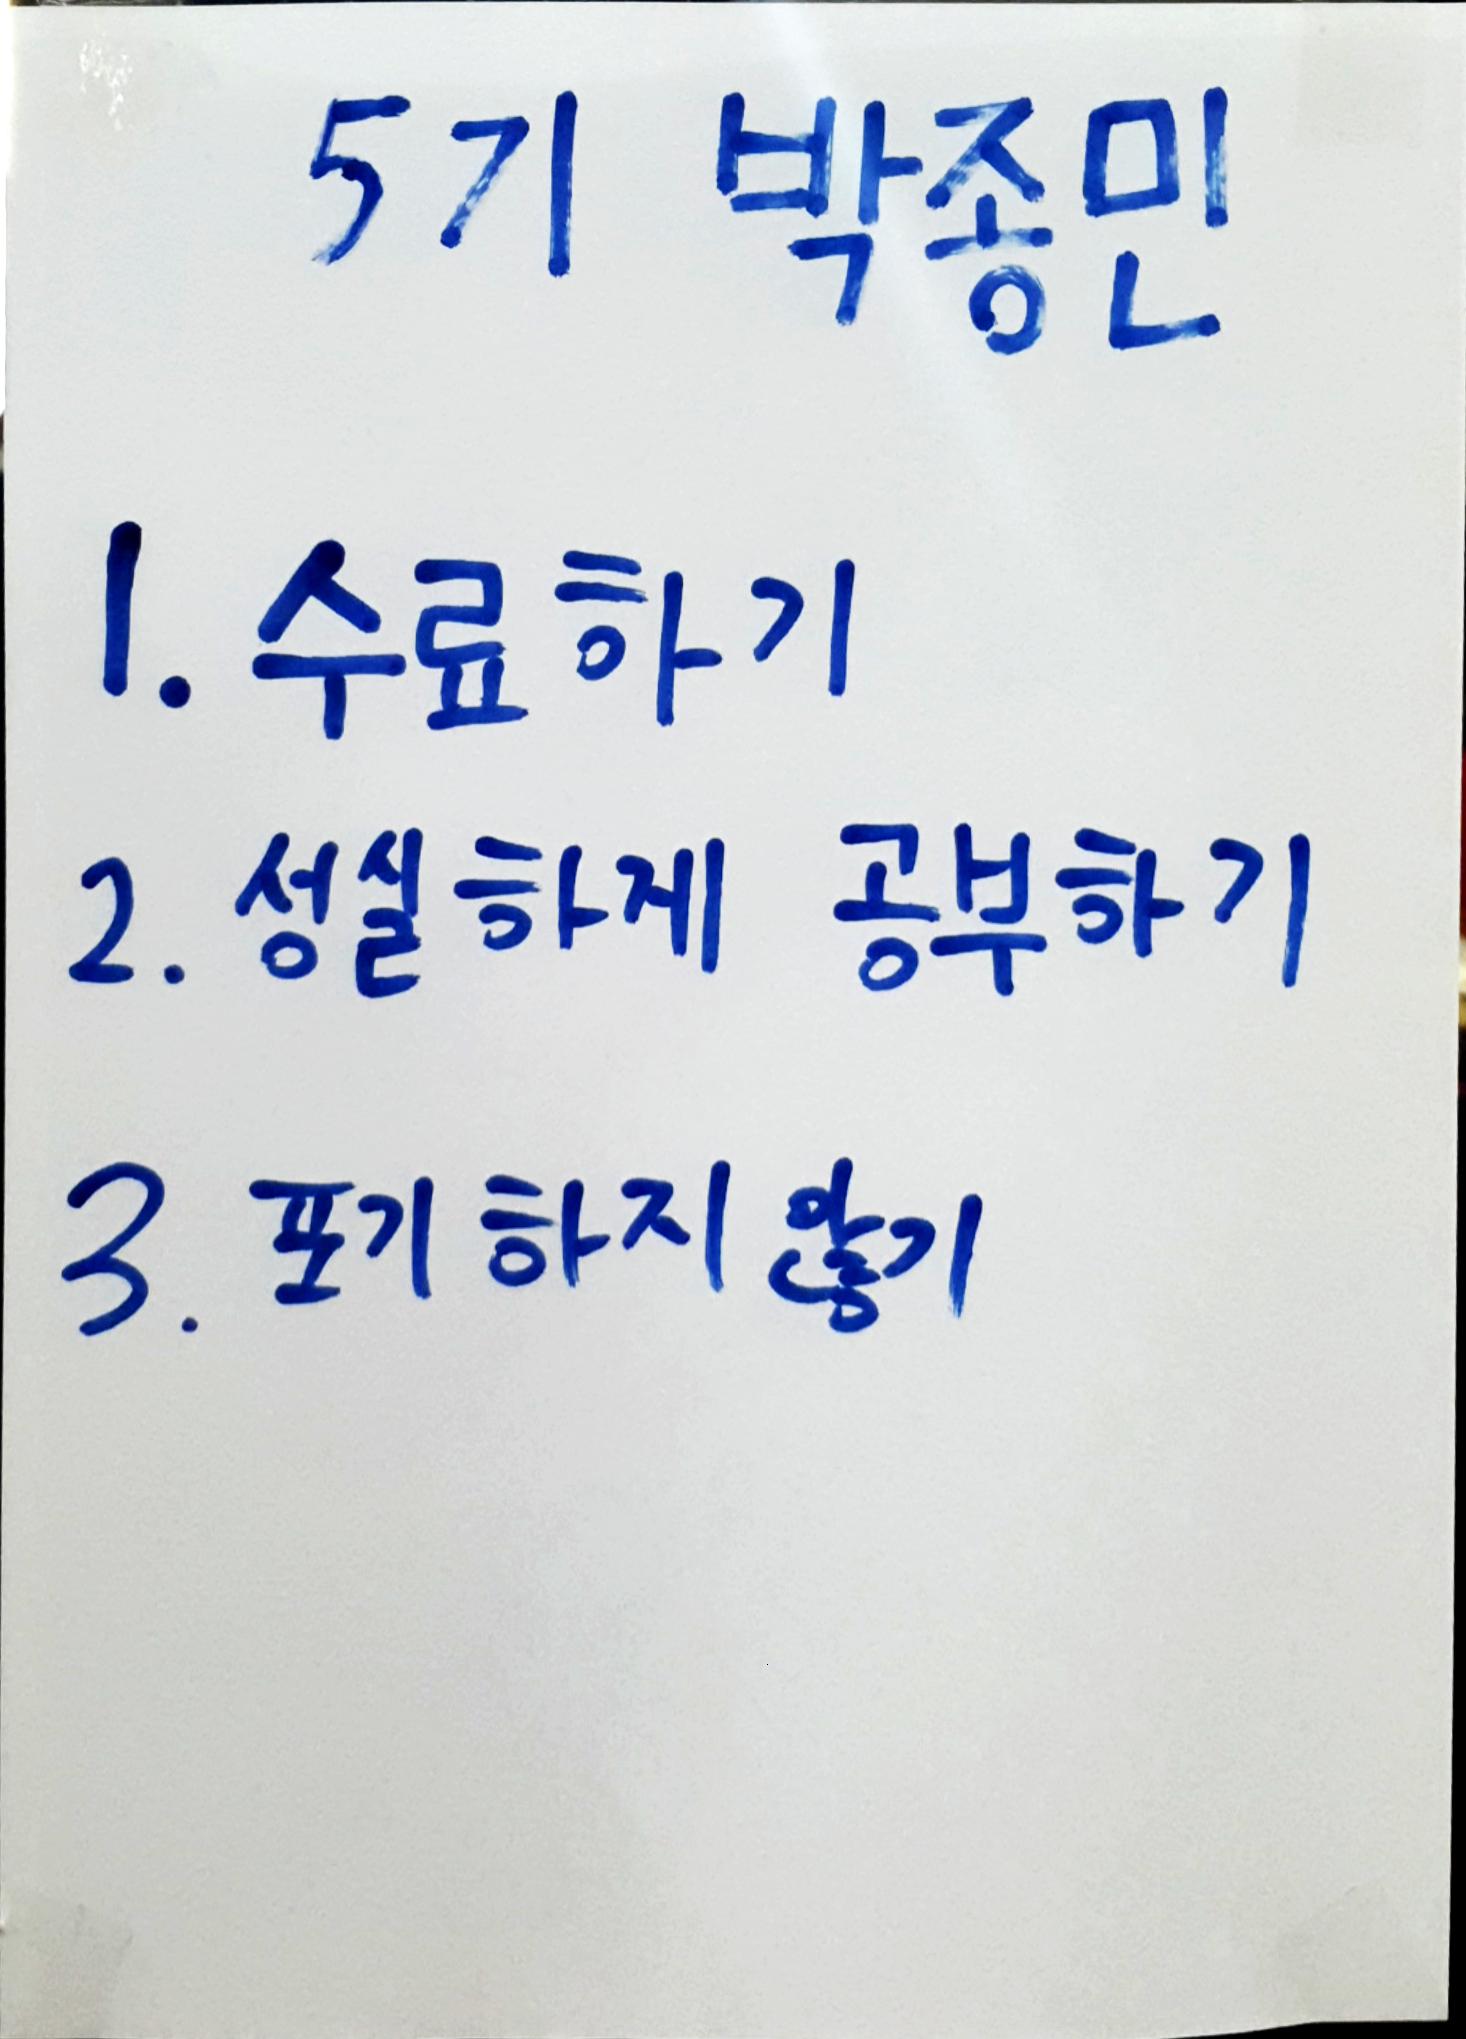 5기 박종민
1. 수료하기
2. 성실하게 공부하기
3. 포기하지 않기